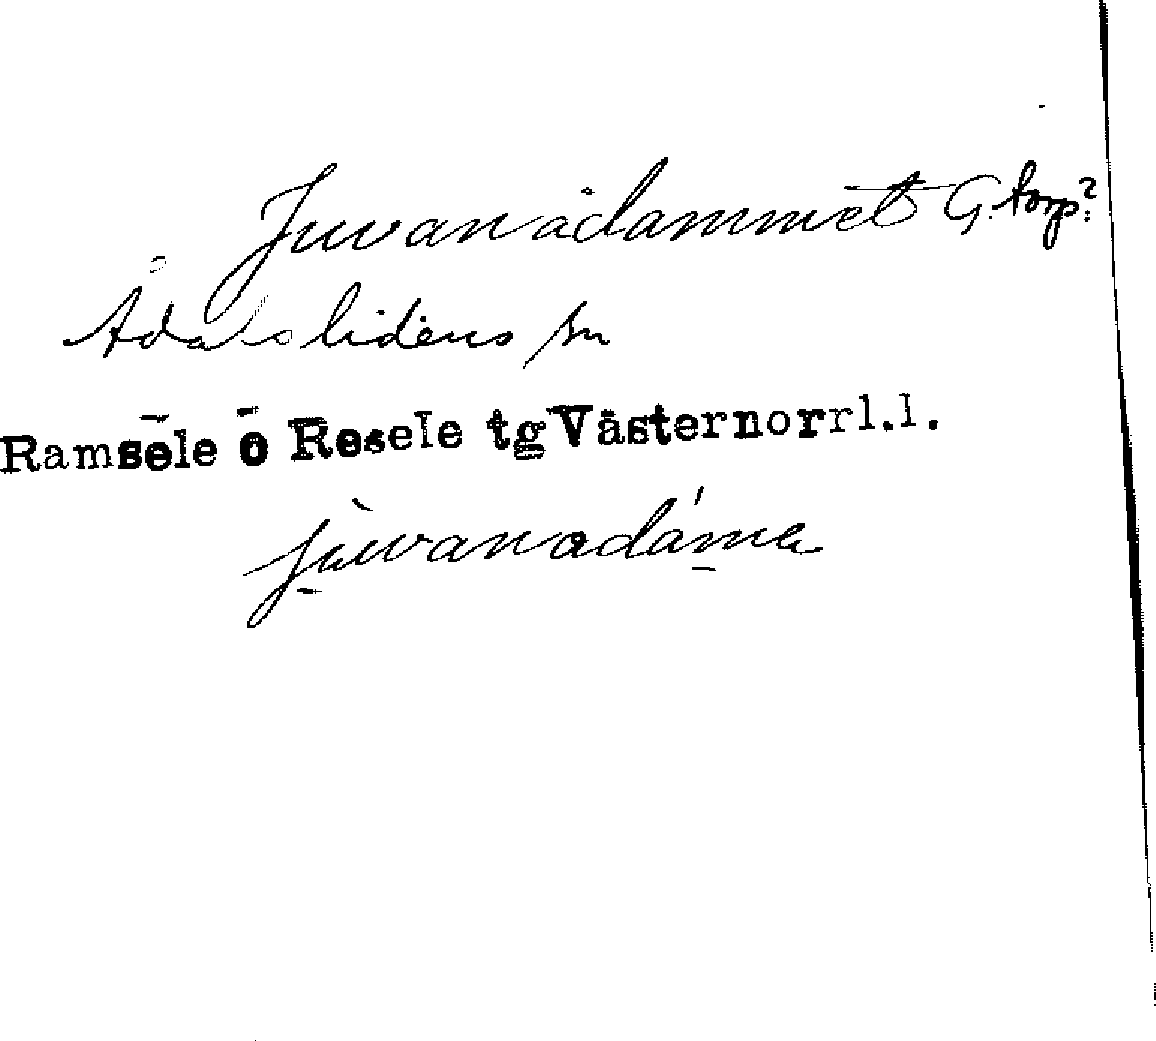 Juvanådammet G. torp?
Ådalslidens sn
Ramsele o Resele tg Västernorrl.l.
jùvanadám̱a